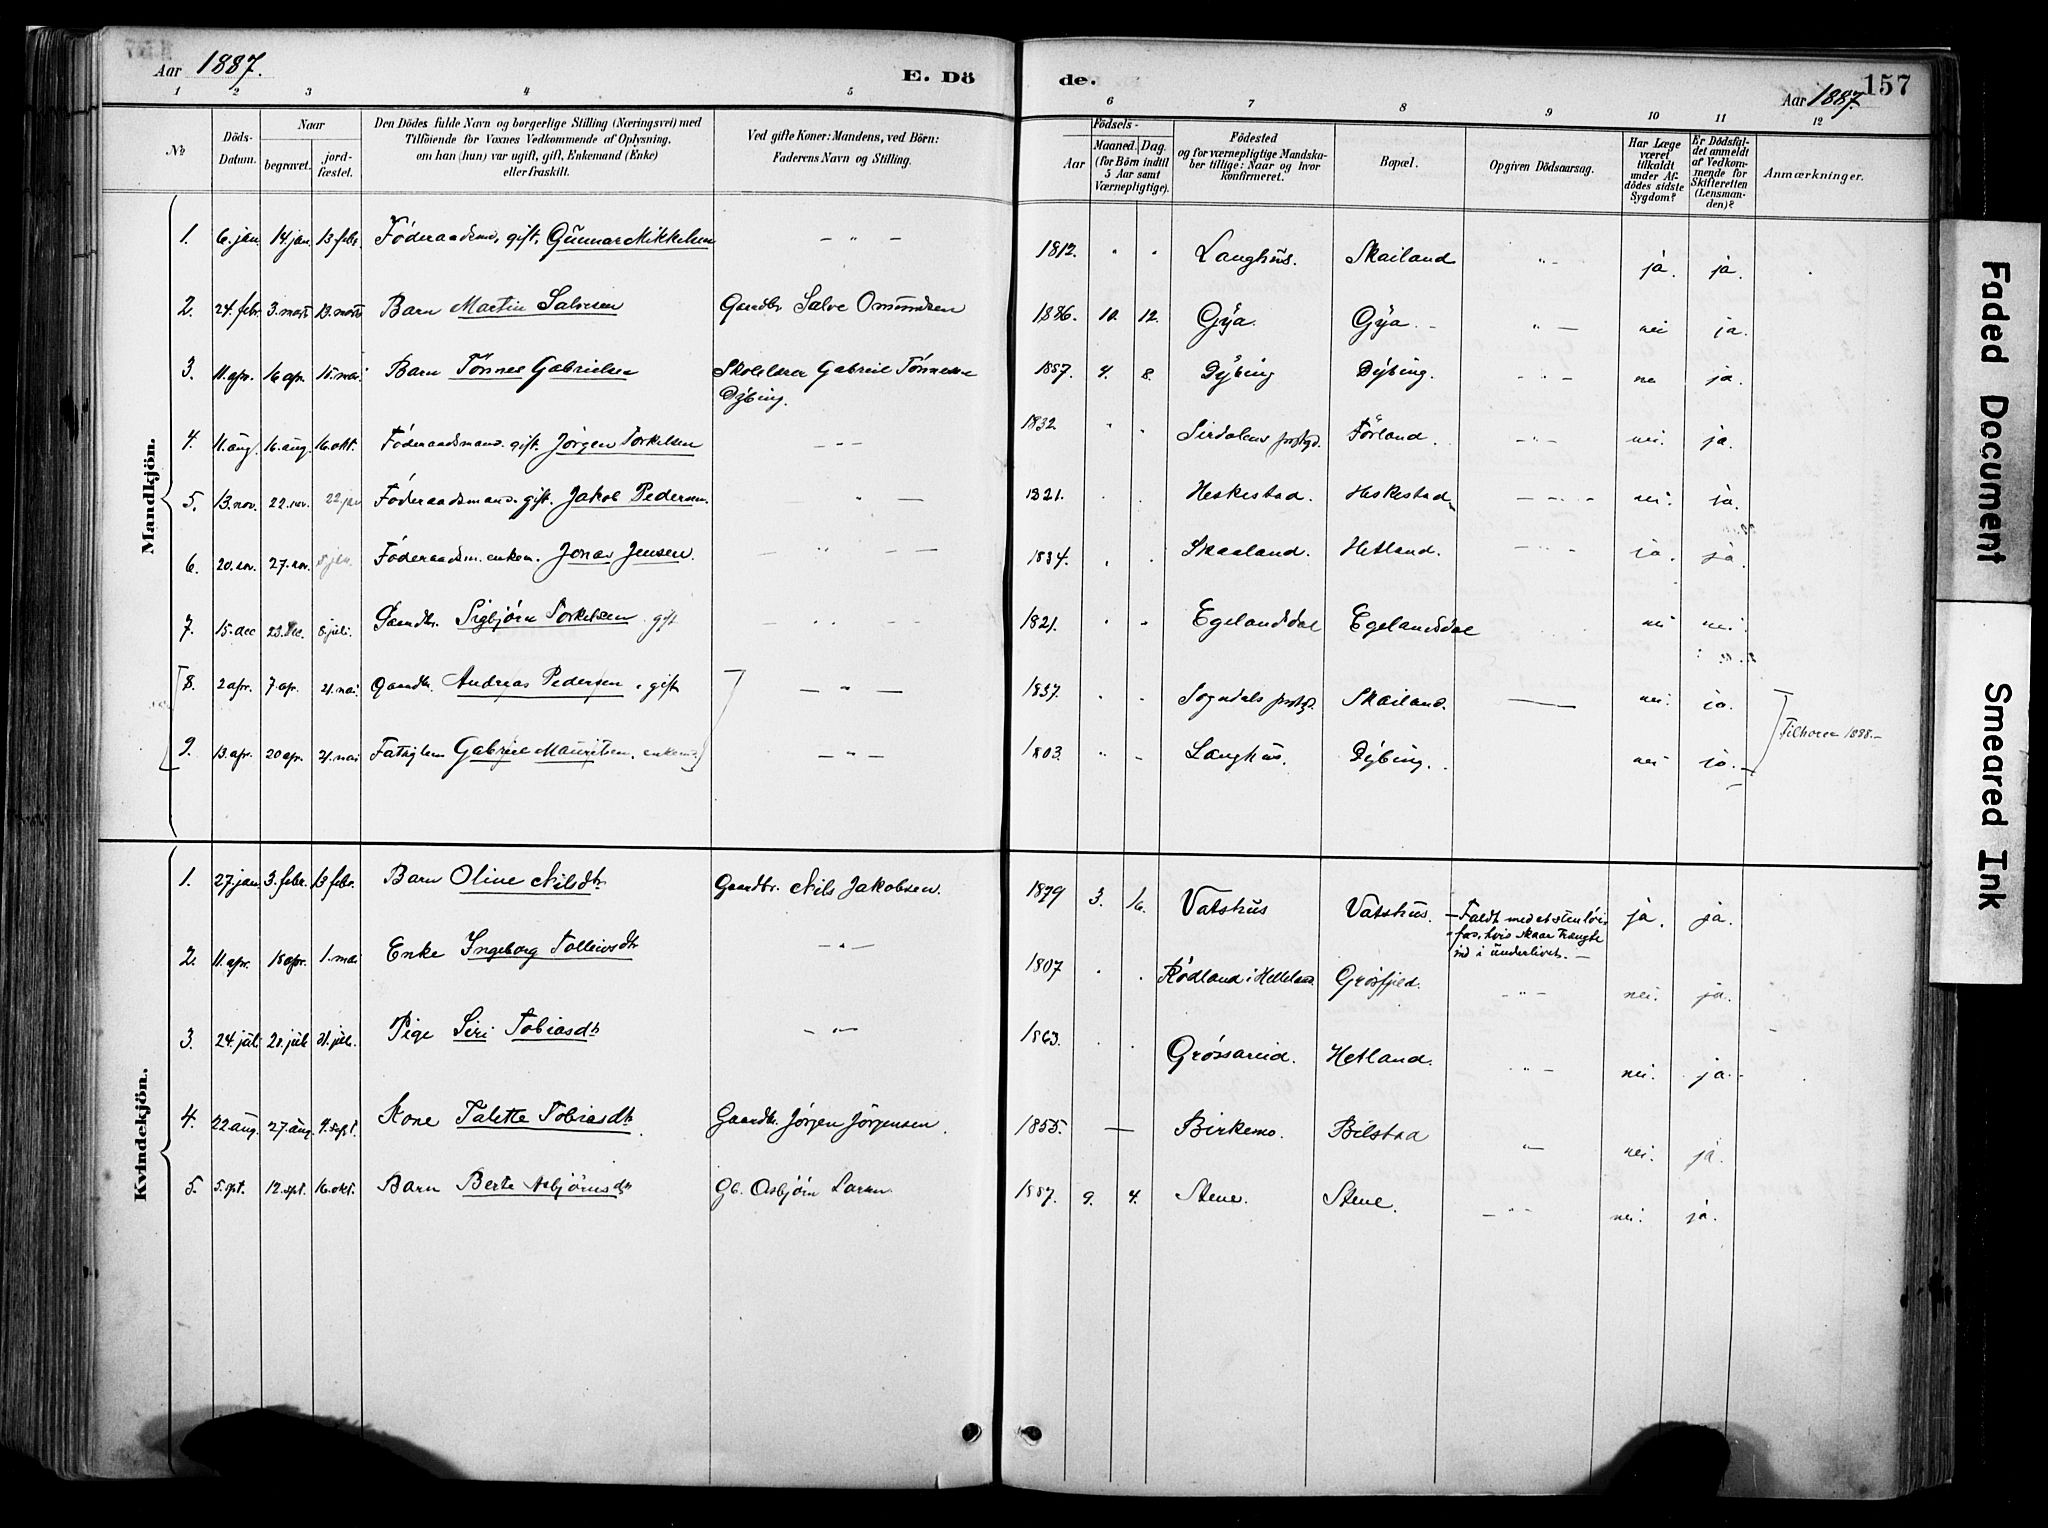 Aar 1887. E. Dö de. Aar 1887. 157
1 2 3 4 5 6 7 8 9 10 11 12
No
Döds-Datum.
Naar
begravet.
jordfæstet.
Den Dödes fulde Navn og borgerlige Stilling (Næringsvei) med
Tilföiende for Voxnes Vedkommende af Oplysning,
om han (hun) var ugift, gift, Enkemand (Enke)
eller fraskilt.
Ved gifte Koner: Mandens, ved Börn:
Faderens Navn og Stilling.
Födsels-
Aar
Maaned. Dag.
(for Börn indtil
5 Aar samt
Værnepligtige).
Födested
og for værnepligtige Mandskaber tillige: Naar og hvor
Konfirmeret.
Bopæl.
Opgiven Dödsaarsag.
Har Læge
været
tilkaldt
under Afdödes sidste
Sygdom?
Er Dödsfaldet anmeldt
af Vedkommende for
Skifteretten
(Lensmanden)?
Anmærkninger.
Mandkjön.
1. 6. jan. 14. jan. 13. febr Föderaadsm. gift, Gunnar Mikkelsen — " — 1812. " " Langhus. Skailand " — ja. ja.
2. 24. febr. 3. marts 13. marts Barn Martin Salvesen Gaardbr Salve Omundsen 1886. 10. 12. Gya. Gya. " — nei ja.
3. 11. apr. 16 apr. 15. mai. Barn Tönnes Gabrielsen Skolelærer Gabriel Tönnessen
Dybing. 1887. 4. 8. Dybing Dybing. - " - ja.
4. 11. aug 16. aug. 16. okt. Föderaadsmand. gift. Jörgen Torkelsen — " — 1832. " . Sirdalens prstgd. Förland. - " - nei. ja.
5. 13. nov. 22. nov. 22. jan Föderaadsmand. gift. Jakob Pedersen. " — 1821. . . Heskestad. Heskestad — nei. ja.
6. 20. nov. 27. nov. 8 jan. Föderaadsm. enkem. Jonas Jensen. — " — — 1834. . . Skaaland. Hetland. — " — ja. ja.
7. 15. dec 23. dec. 8. juli. Gaardbr. Sigbjörn Torkelsen gift - " - 1821. . " Egelandsdal Egelandsdal nei nei.
8. 2 apr. 7. apr. 21. mai Gaardbr. Andreas Pedersen, gift — " — 1837. . . Sogndals prstgd. Skailand. — nei. ja.
9. 13. apr. 20 apr. 21. mai Fattiglem Gabriel Mauritsen. enkem. — " — 1803. " - Langhus. Dybing. nei ja.
Tilhörer 1888.-
Kvindekjön.
1. 27. jan. 3. febr. 13 febr. Barn Oline Nilsdtr Gaardbr. Nils Jakobsen. 1879 3. 16. Vatshus Vatshus. - Faldt med et
fas, hvis skaar trængte
ind i underlivet. — ja. ja.
2. 11. apr. 18 apr. 1. mai Enke Ingeborg Tolleivsdtr — " — 1807 . . Rödland i Helleland Grösfjeld. - " - nei. ja.
3. 24. juli 28. juli 31. juli. Pige Siri Tobiasdtr — " — 1863. . . Grössareid. Hetland. - " - nei. ja.
4. 22 aug. 27. aug. 4. sept. Kone Talette Tobiasdtr. Gaardbr. Jörgen Jörgensen. 1855. — Birkemo. Bilstad " — nei. ja.
5. 5. spt. 12. spt. 16. okt. Barn Berte Asbjörnsdtr Gb. Asbjörn Larsen 1887. 9. 4. Stene. Stene. — " — nei. ja.
Faded Document
Smeared Ink